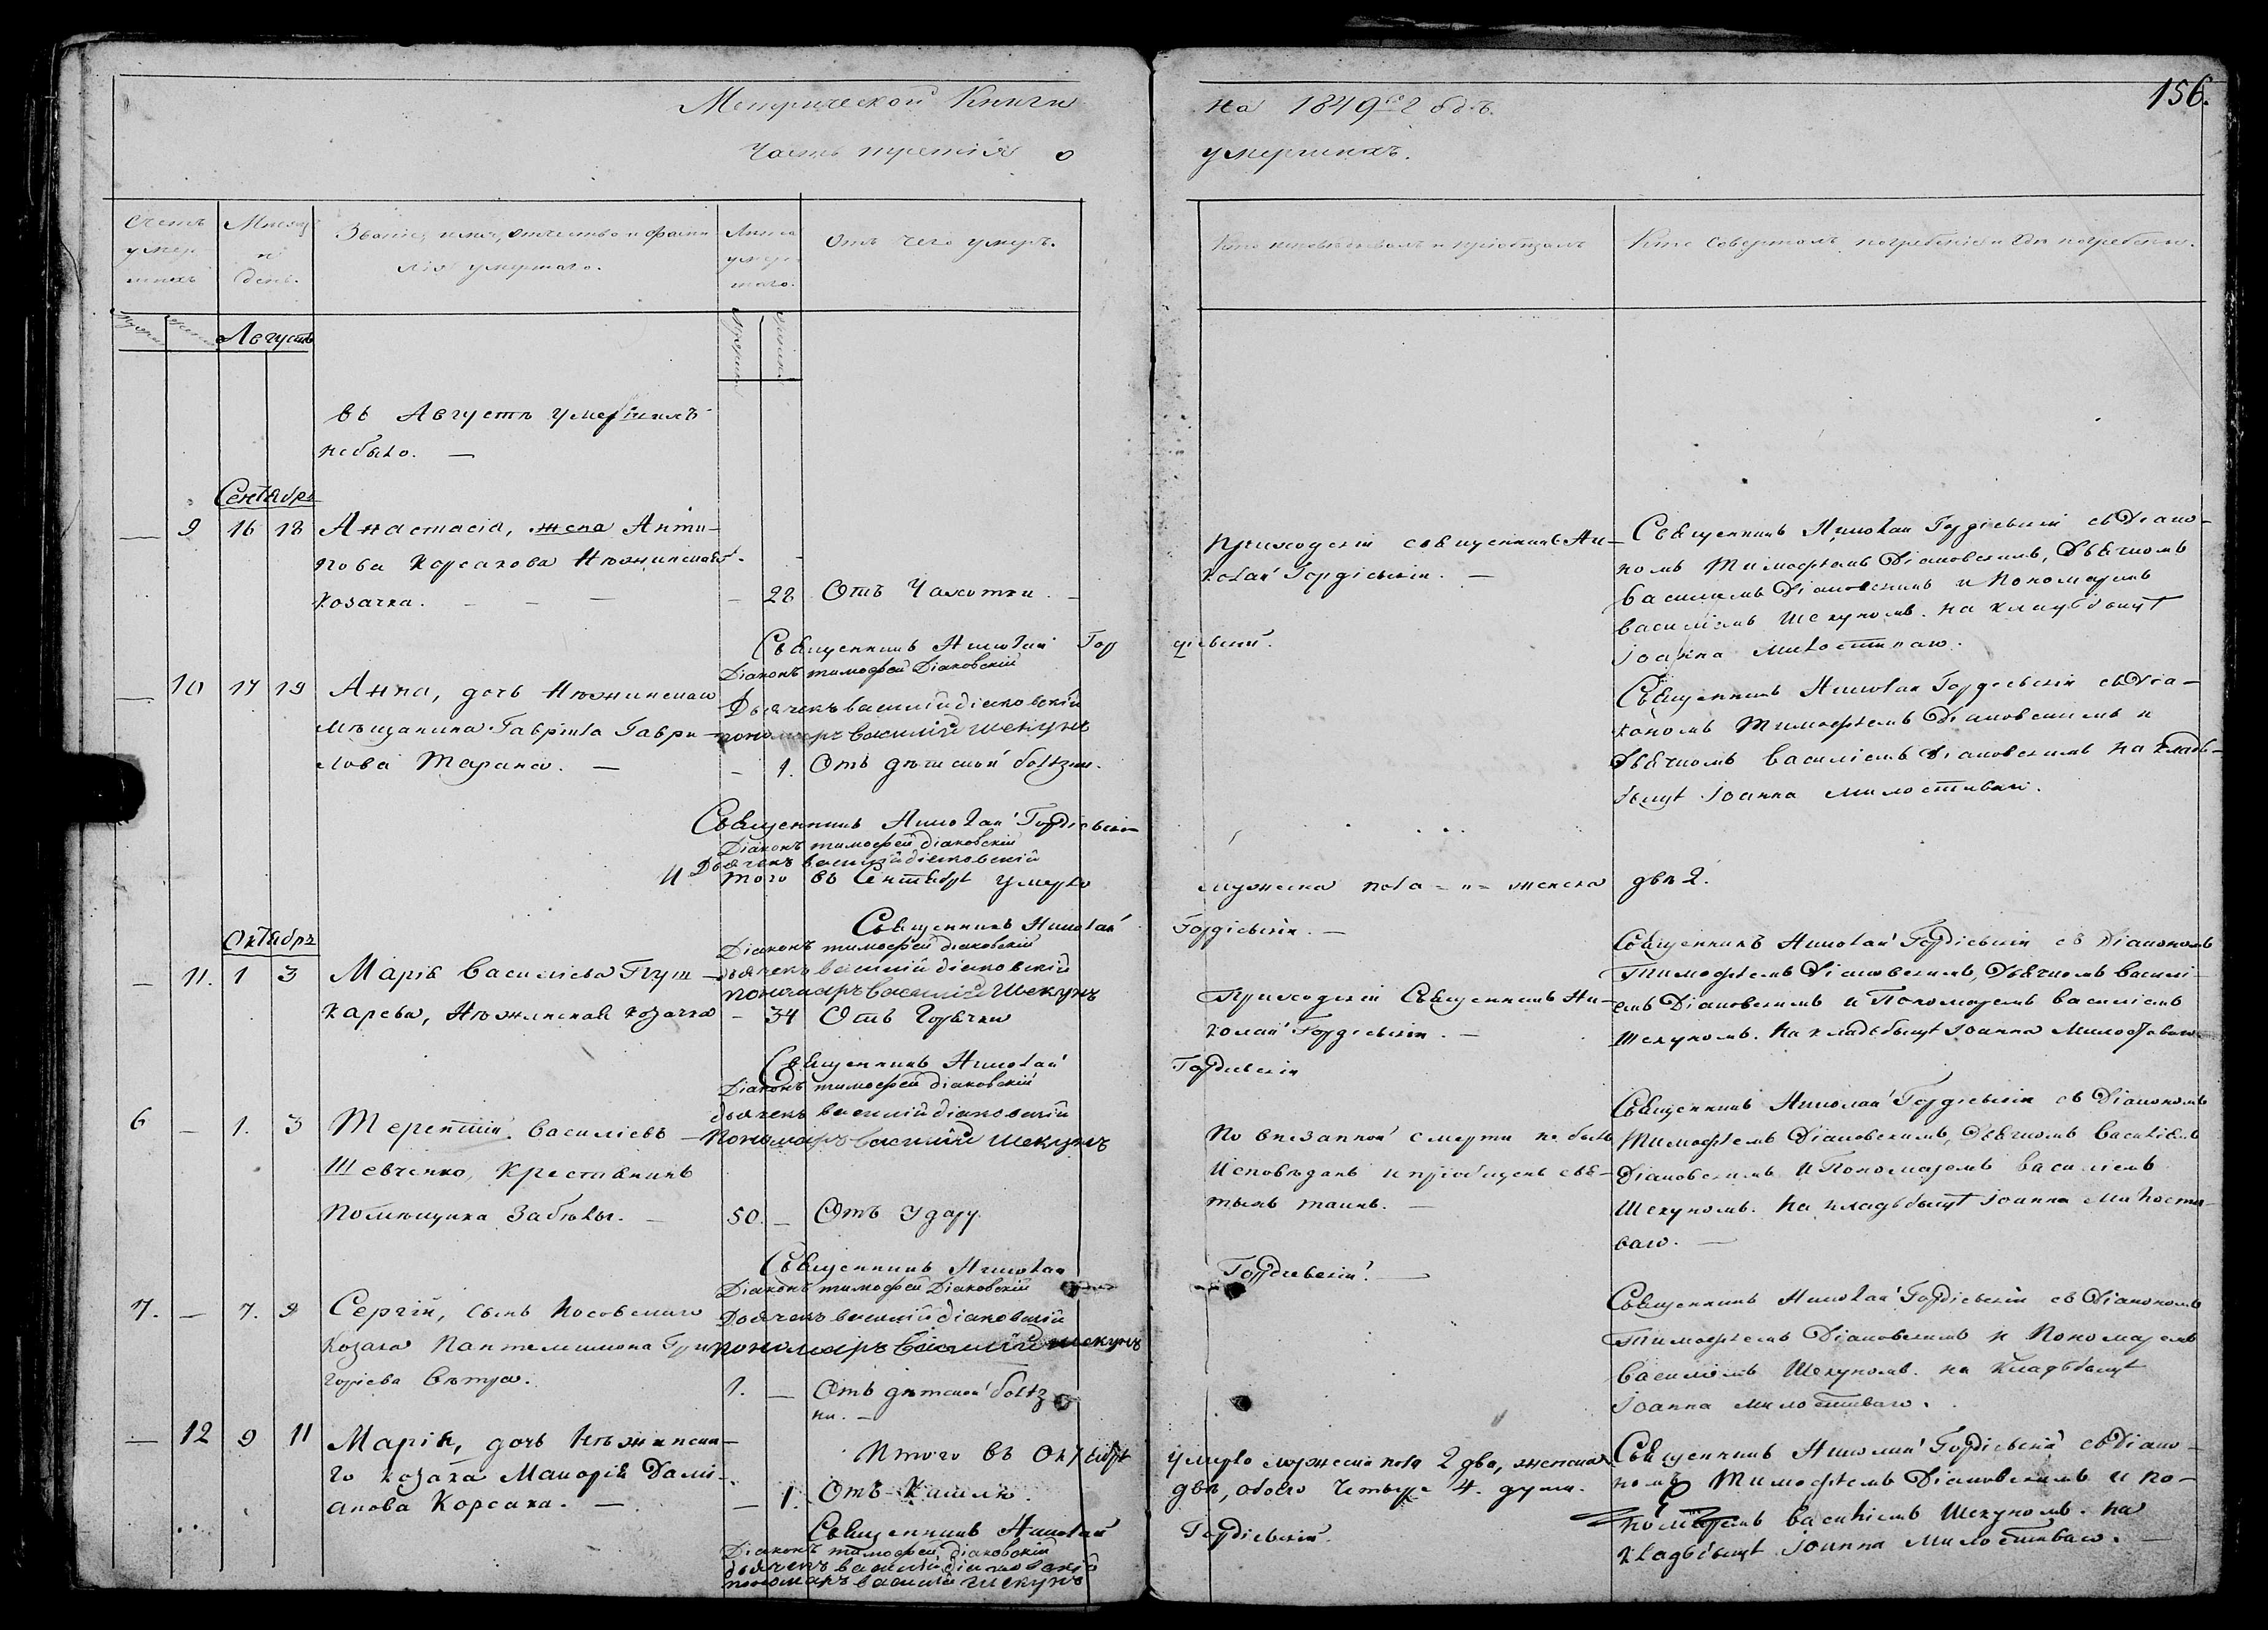 156.
Метрической Книги на 1849й годъ.
Часть третія о умершихъ.
Счетъ умер шихъ
Мѣсяцъ и день.
Званіе, имя, отчество и фами
лія умершаго.
Лѣта умер шаго.
Отъ чего умеръ.
Кто исповѣдывалъ и пріобщалъ
Кто совершалъ погребеніе и гдѣ погребены.
Августъ
въ Августѣ умершихъ
небыло. —
Сентябрь
— 9 16 18 Анастасія, жена Анти-
пова Корсакова Нѣжинская
козачка. — 28 Отъ Чахотки. —
Приходскій священникъ Ни-
колай Гордіевскій. —
Священникъ Николай Гордіевскій съ Діако-
номъ Тимофѣемъ Діаковскимъ, Дьячкомъ
Василіемъ Діаковскимъ и Пономаремъ
Василіемъ Шекуномъ. на кладбищѣ
Іоанна Милостиваго.
Священникъ Николай Гор діевский.
Діаконъ тимофей Діаковскій
Дьячекъ василий діяковскій
пономарь василий шекунъ
— 10 17 19 Анна, дочь Нѣжинскаго
мѣщанина Гавріила Гаври-
лова Тарана. — — 1. Отъ дѣтской болѣзни.
Священникъ Николай Гордіевскій съ Діа-
кономъ Тимофѣемъ Діаковскимъ и
Дьячкомъ Василіемъ Діаковскимъ на клад-
бищѣ Іоанна Милостиваго.
Священникъ Николай Гордіевскій
Діаконъ тимофей діаковскій
Дьячекъ василий діяковскій
Итого въ Сентябрѣ умерло мужеска пола - „ - женска двѣ 2.
Священникъ Николай Гордіевскій. —
Діаконъ тимофей діаковскій
дьячекъ василий діяковскій
пономарь василий Шекунъ
Октябрь
— 11. 1 3 Марія Василіева Пуш-
карева, Нѣжинская козачка — 34 Отъ Горячки
Приходскій Священникъ Ни-
колай Гордіевскій. —
Священникъ Николай Гордіевскій съ Діакономъ
Тимофѣемъ Діаковскимъ, Дьячкомъ Василі-
емъ Діаковскимъ и Пономаремъ Василіемъ
Шекуномъ. на кладбищѣ Іоанна Милостиваго.
Священникъ Николай Гордіевскій
Діаконъ тимофей діаковскій
дьячекъ василий діяковскій
Пономарь василий Шекунъ
6 — 1. 3 Терентій Василіевъ
Шевченко, Крестянинъ
помѣщика Забѣлы. — 50. — Отъ Удару.
По внезапной смерти не былъ
Исповѣданъ и пріобщенъ свя-
тыхъ таинъ. —
Священникъ Николай Гордіевскій съ Діакономъ
Тимофѣемъ Діаковскимъ, Дьячкомъ Василіемъ
Діаковскимъ и Пономаремъ Василіемъ
Шекуномъ. на кладбищѣ Іоанна Милости-
ваго. —
Священникъ Николай Гордіевскій. —
Діаконъ тимофей Діаковскій
Дьячекъ василий діяковскій
пономарь василий шекунъ
7. — 7. 9 Сергій, сынъ Носовскаго
Козака Пантелиимона Гри
горіева Вѣтра. 1. — Отъ дѣтской болѣз
ни. —
Священникъ Николай Гордіевскій съ Діакономъ
Тимофѣемъ Діаковскимъ и Пономаремъ
Василіемъ Шекуномъ. на Кладбищѣ
Іоанна Милостиваго.
— 12 9 11 Марія, дочь Нѣжинска-
го козака Дамі-
анова Корсака. — — 1. Отъ Кашлю.
Итого въ Октябрѣ умерло мужеска пола 2 два, женска
двѣ, обоего Четыре 4. души.
Священникъ Николай Гордіевскій съ Діако-
номъ Тимофѣемъ Діаковскимъ и по-
номаремъ Василіемъ Шекуномъ. на
кладбищѣ Іоанна Милостиваго. —
Священникъ Николай Гордіевскій.
Діаконъ тимофей діаковскій
дьячекъ василий діяковскій
пономарь василий шекунъ